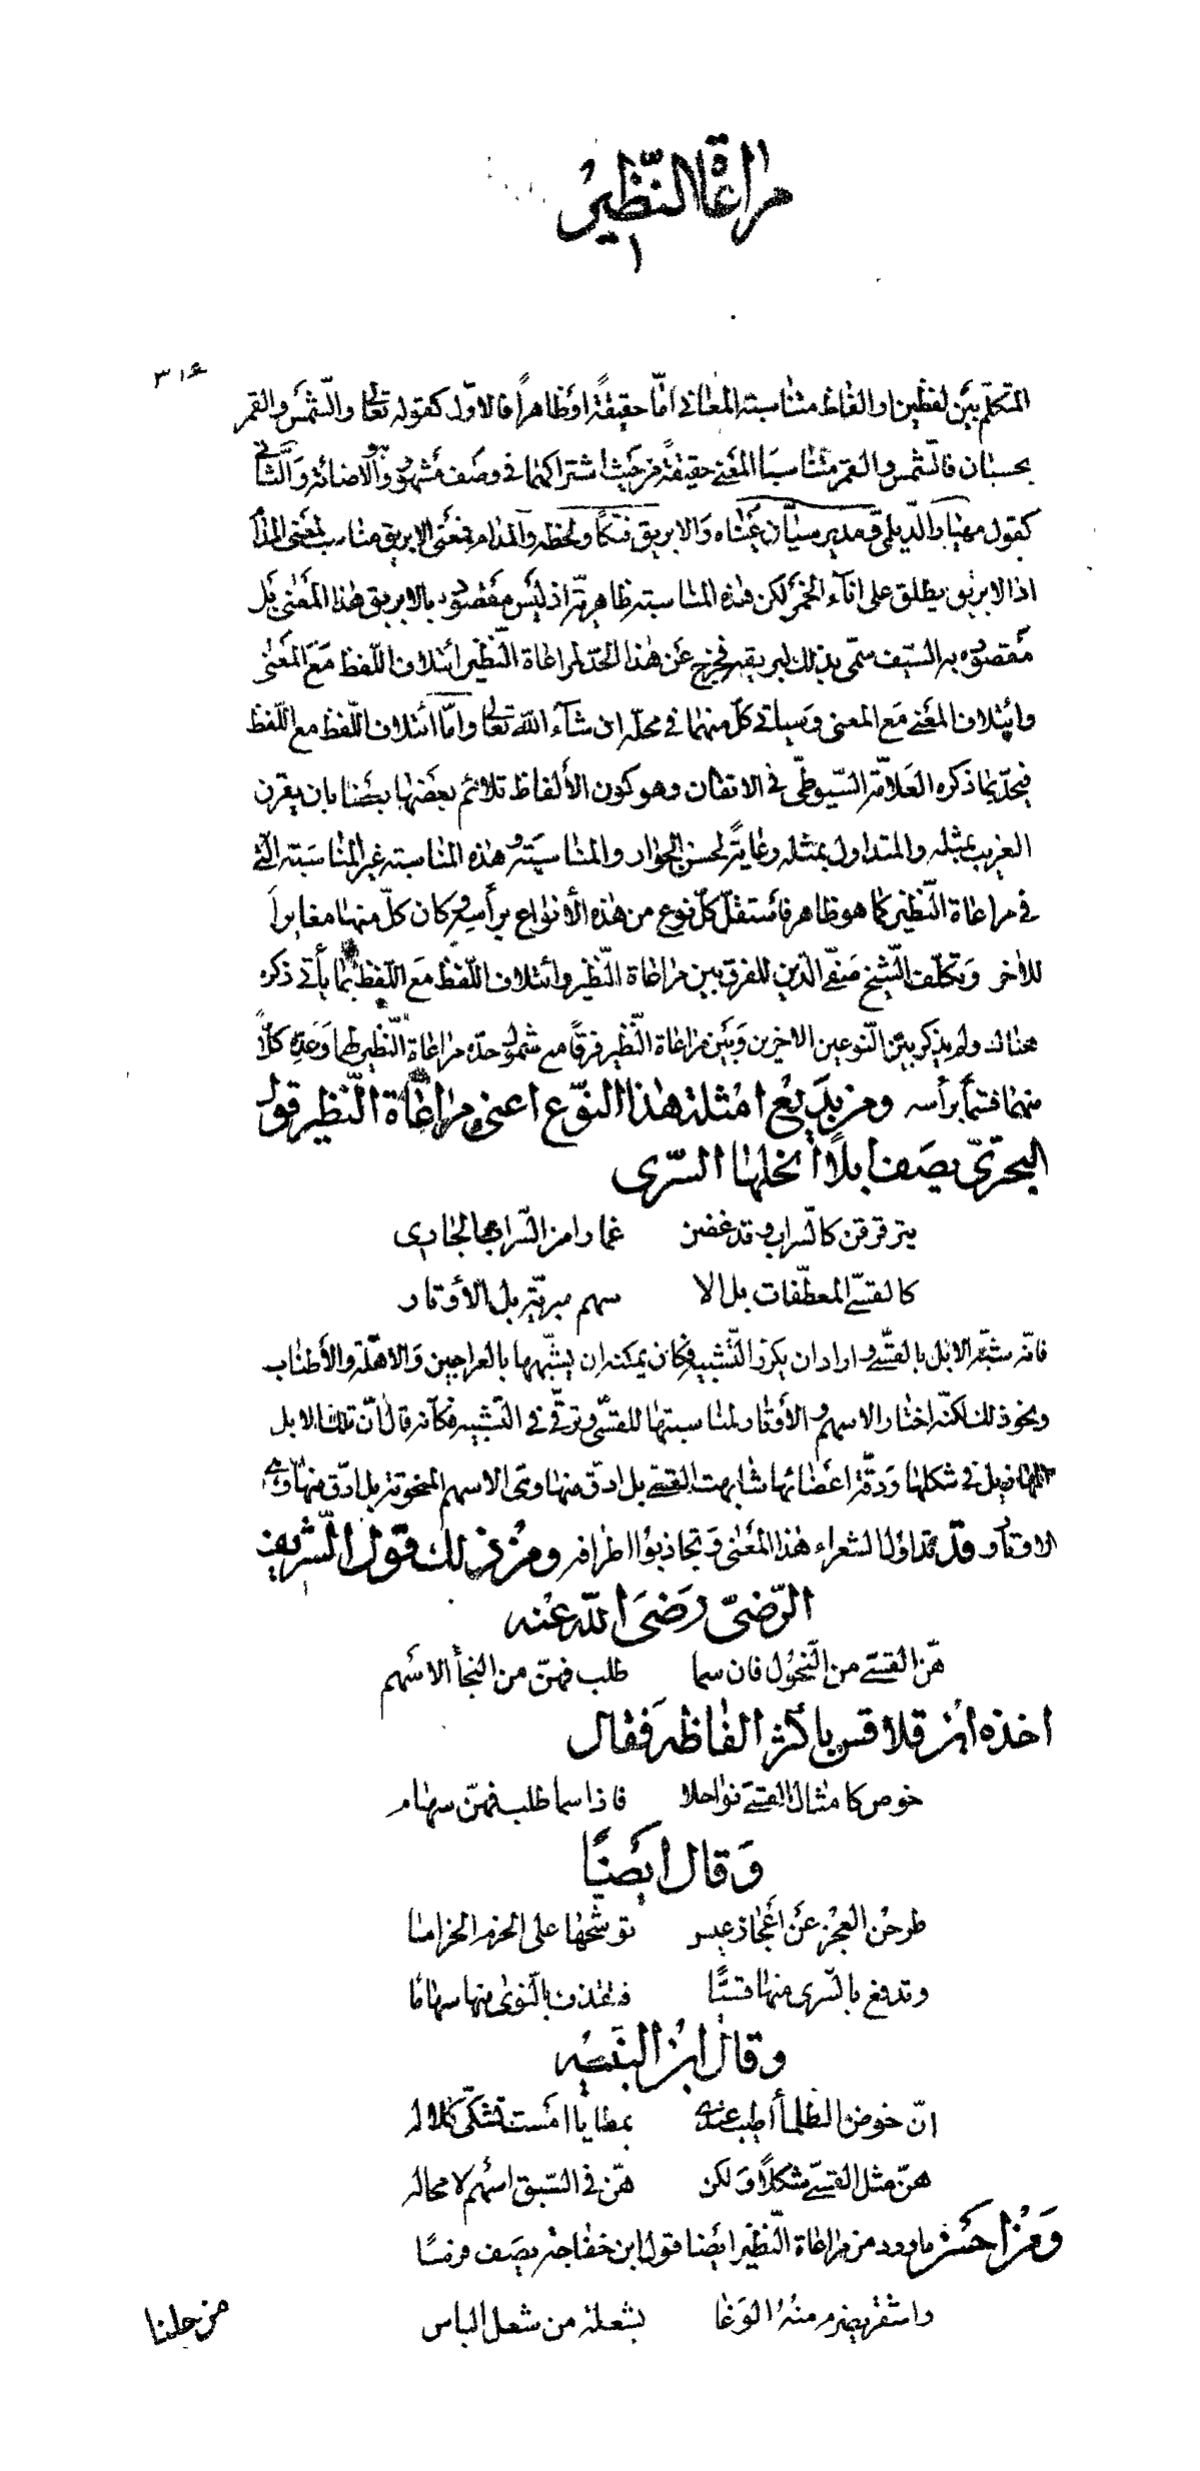 مراعاة النّظير
١
٣١٤
المتكلّم بين لفظين او الفاظ متناسبة المعانى امّا حقيقةً او ظاهراً فالاوّل كقوله تعالى والشّمس والقمر
بحسبان فالشّمس والقمر متناسبا المعنى حقيقةً من حيث اشتراكهما فى وصف مشهور وهو الاضائة والثّانى
كقول مهيار الدّيلمى مدير سيّان عيناه والابريق فتكاً ولحظه والمدام فمعنى الابريق مناسب لمعنى المدام
اذ الابريق يطلق على اناء الخمر لكن هذه المناسبة ظاهريّة اذ ليس مقصوده بالابريق هذا المعنى بل
مقصوده به السّيف سمّى بذلك لبريقه فخرج عن هذا الحدّ لمراعاة النّظير ائتلاف اللّفظ مع المعنى
وائتلاف المعنى مع المعنى وسياتى كلّ منهما فى محلّه ان شاء اللّه تعالى وامّا ائتلاف اللّفظ مع اللّفظ
فيحدّ بما ذكره العلاّمة السّيوطىّ فى الاتقان وهو كون الألفاظ تلائم بعضها بعضا بان يقرن
الغريب بمثله والمتداول بمثله رعايةً لحسن الجوار والمناسبة وهذه المناسبة غير المناسبة الّتى
فى مراعاة النّظير كما هو ظاهر فاستقلّ كلّ نوع من هذه الأنواع برأسه وكان كلّ منها مغايراً
للأخر وتكلّف الشّيخ صفىّ الدّين للفرق بين مراعاة النّظير وائتلاف اللّفظ مع اللّفظ بما يأتى ذكره
هناك ولم يذكر بين النّوعين الاخيرين وبين مراعاة النّظير فرقاً مع شمول حدّه مراعاة النّظير لهما وعدّه كلاًّ
منهما قسماً برأسه ومن بديع امثلة هذا النّوع اعنى مراعاة النّظير قول
البحترىّ يصف ابلاً انحلها السّرى
يترقرقن كالسّراب وقد خضن غمارا من السّراب الجارى
كالقسىّ المعطّفات بل الا سهم مبريّة بل الأوتار
فانّه شبّه الابل بالقسىّ واراد ان يكرّر التّشبيه فكان يمكنه ان يشبّهها بالعراجين والاهلّة والأطناب
ونحو ذلك لكنّه اختار الاسهم والأوتار لمناسبتها للقسىّ وترقّى فى التّشبيه فكأنّه قال انّ تلك الابل
المهازيل فى شكلها ودقّة اعضائها شابهت القسىّ بل ادقّ منها وهى الاسهم المنحوتة بل ادقّ منها وهى
الاوتار وقد تداول الشعراء هذا المعنى وتجاذبوا اطرافه ومن ذلك قول الشّريف
الرّضىّ رضى اللّه عنه
هنّ القسىّ من النّحول فان سما طلب فهنّ من النجأ الاسهم
اخذه ابن قلاقس بأكثر الفاظه فقال
خوص كامثال القسىّ نواحلا فاذا سما طلب فهنّ سهام
وقال ايضاً
طرحن العجز عن أعجاز عيس توشّحها على الحزم الحزاما
وتدفع بالسّرى منها قسيّا فتقذف بالنّوى منها سهاما
وقال ابن النبيه
انّ خوض الظّلمأ اطيب عندى بمطايا امست تشكّى كلاله
هنّ مثل القسىّ شكلاً ولكن هنّ فى السّبق اسهم لا محاله
ومن احسن ما ورد من مراعاة النّظير ايضا قول ابن خفاجة يصف فرسًا
واشقر يضرم منه الوغا بشعلة من شعل الباس
من جلنا